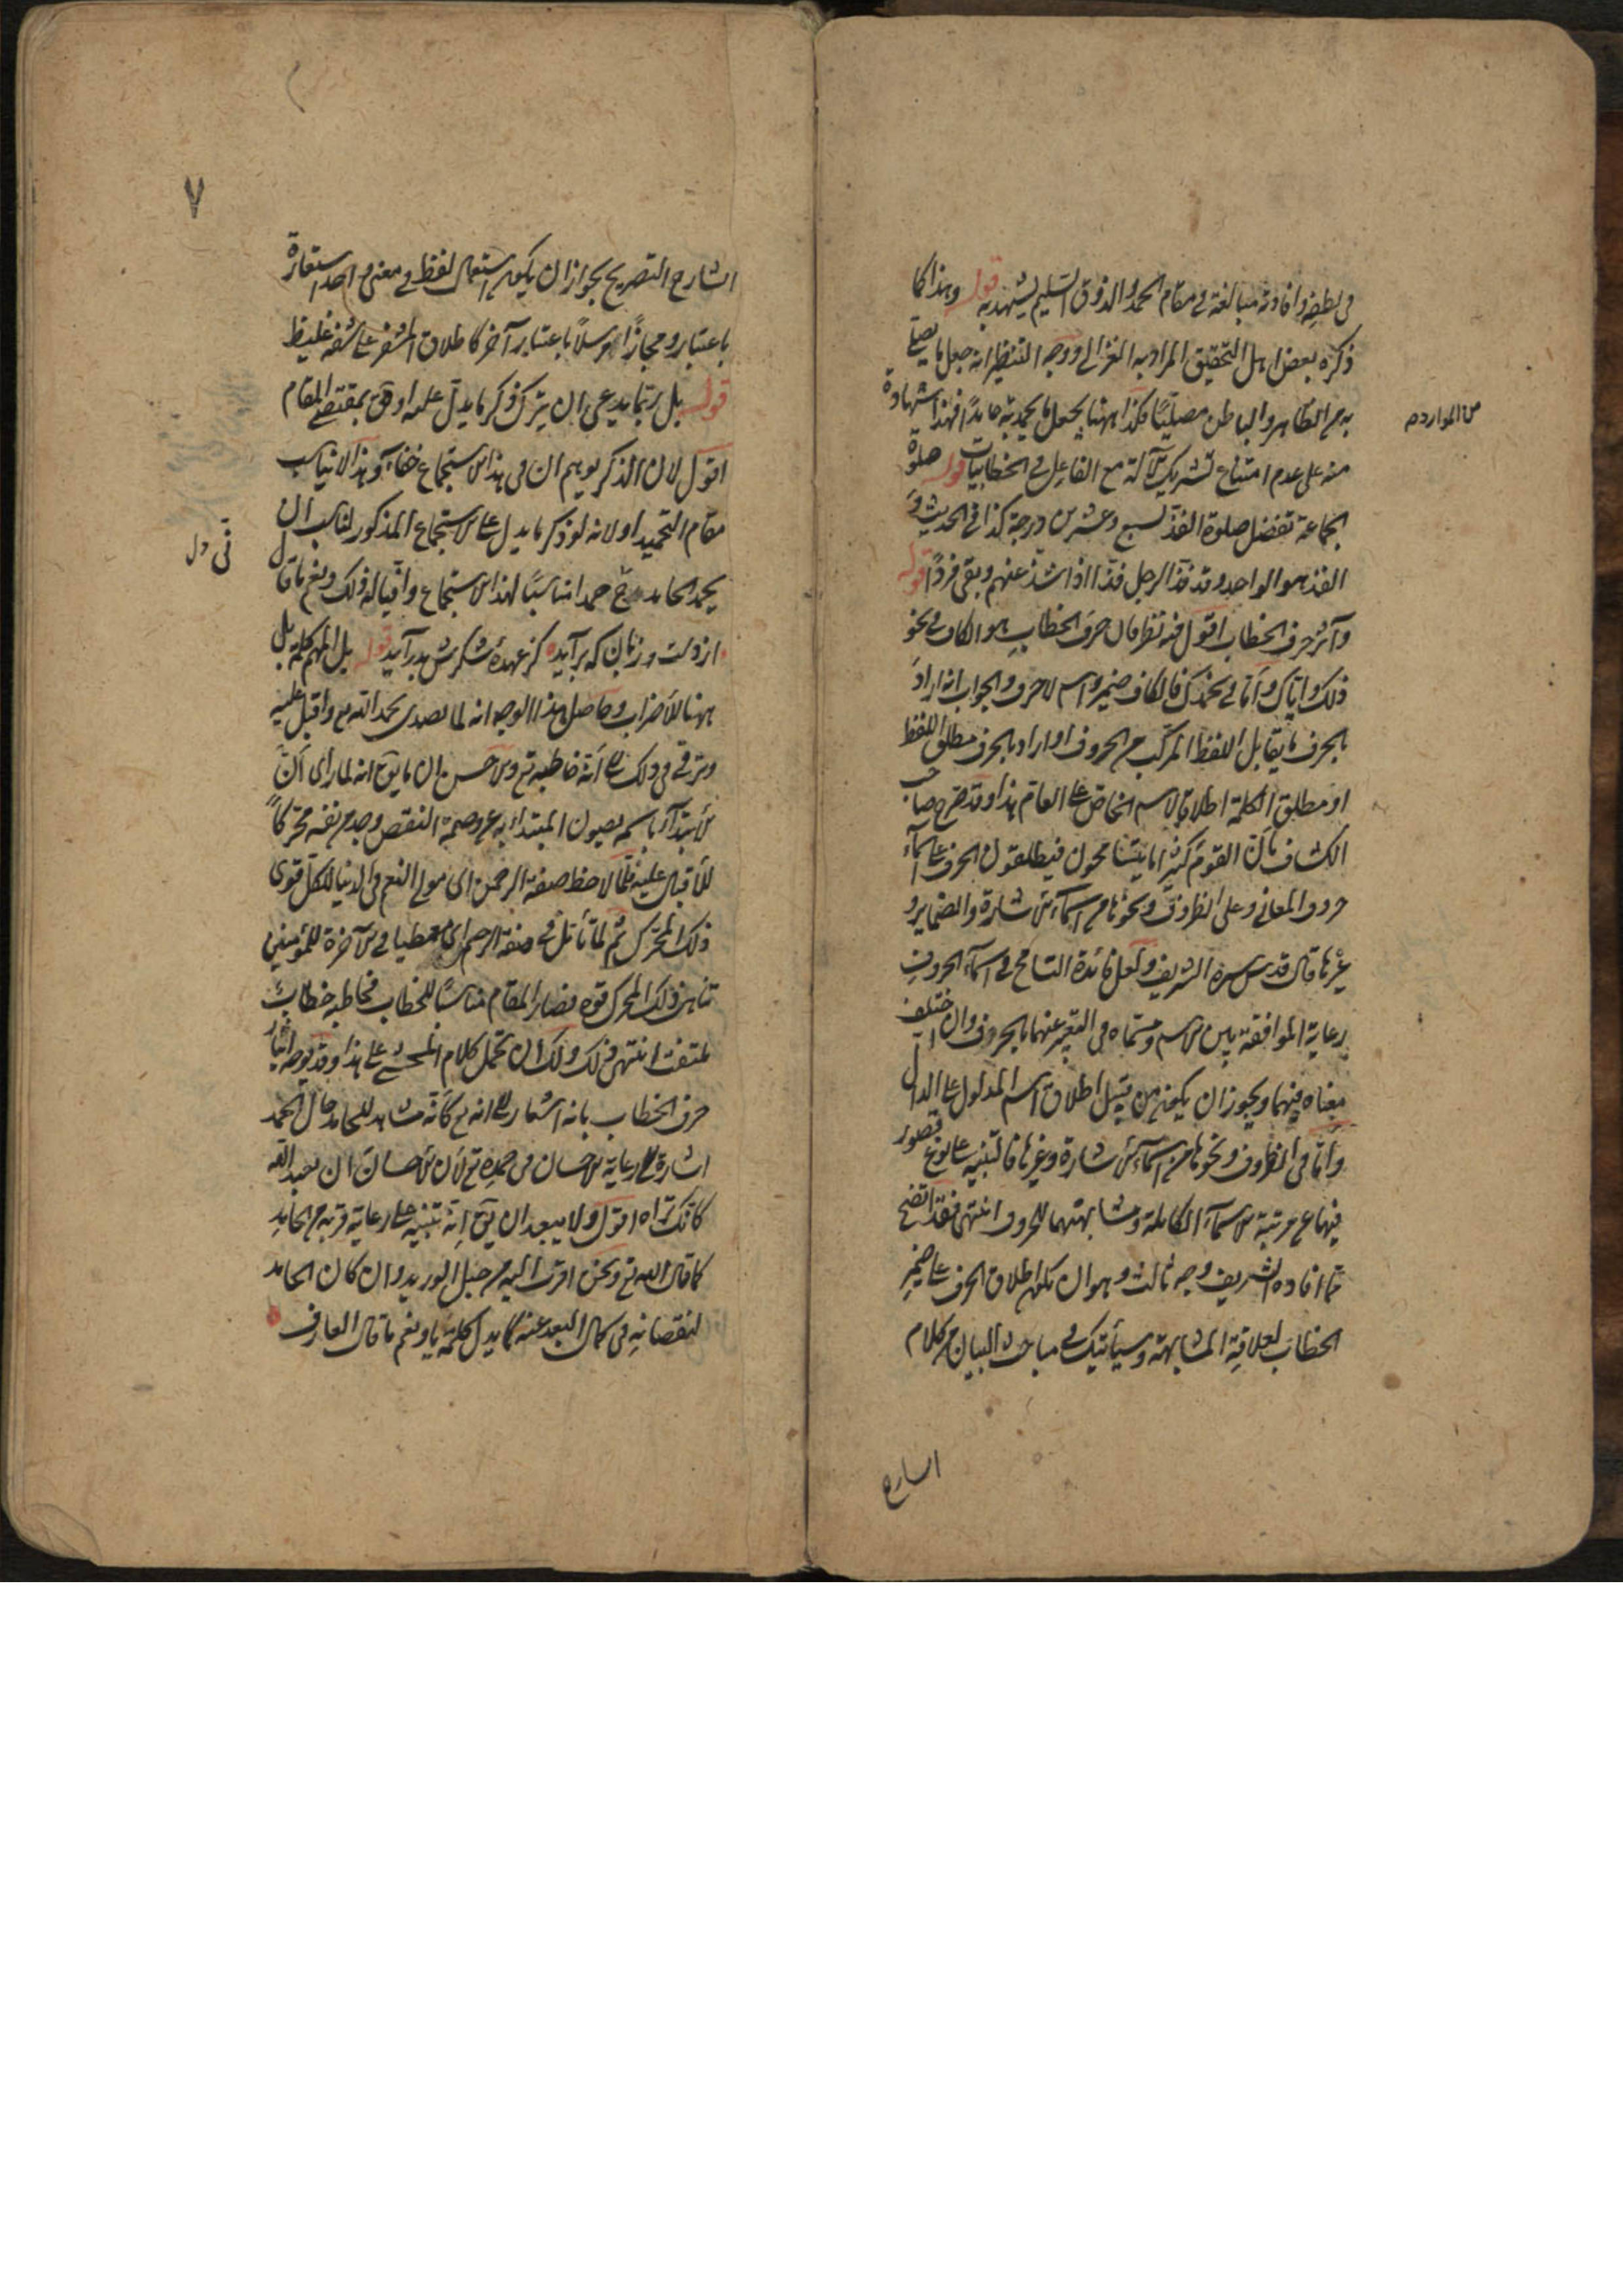 في لطفه وافادته مبالغة في مقام الحمد والذوق السليم يشهد به قوله وهذا كما
ذكره بعض اهل التحقيق المراد به الغزالي ووجه التنظير انه جعل ما يصلي
به من الظاهر والباطن مصليًا فكذا ههنا يجعل ما يحمد به حامدًا فهذا شهادة
منه على عدم امتناع تشريك الآلة مع الفاعل في الخطابيات قوله صلوة
الجماعة تفضل صلوة الفذ بسبع وعشرين درجة كذا في الحديث و
الفذ هو الواحد وقد فذ الرجل فذا اذا شذ عنهم وبقى فردًا قوله
وآثر حرف الخطاب اقول فيه نظر فان حرف الخطاب هو الكاف في نحو
ذلك واياك واما في نحمدك فالكاف ضمير واسم لا حرف والجواب انه اراد
بالحرف ما يقابل اللفظ المركب من الحروف او اراد بالحرف مطلق اللفظ
او مطلق الكلمة اطلاق الاسم الخاص على العام هذا وقد صرح صاحب
الكشاف بان القوم كثيرا ما يتسامحون فيطلقون الحرف على اسماء
حروف المعاني وعلى الظروف ونحوها من اسماء الاشارة والضماير و
غيرها قال قدس سره الشريف ولعل فائدة التسامح في اسماء الحروف
رعاية الموافقة بين الاسم ومسماه في التعبير عنهما بالحروف وان اختلف
معناه فيهما ويجوز ان يكون من قبيل اطلاق اسم المدلول على الدال
واما في الظروف ونحوها من اسماء الاشارة وغيرها فالتنبيه على نوع قصور
فيها عن مرتبة الاسماء الكاملة ومشابهتها للحروف انتهى فقد اتضح
مما افاده الشريف وجه ثالث وهو ان يكون اطلاق الحرف على ضمير
الخطاب لعلاقة المشابهة وسيأتيك في مباحث البيان من كلام
الشارح
من الموارد م
٧
الشارح التصريح بجواز ان يكون استعمال لفظ في معنى واحد استعارة
باعتبار ومجازًا مرسلًا باعتبار آخر كاطلاق المشفر على شفة غليظ
قوله بل ربما يدعى ان يترك ذكر ما يدل عليه اوفق بمقتضى المقام
اقول لان الذكر يوهم ان في هذا الاستجماع خفاء وهذا لا يناسب
مقام التحميد او لانه لو ذكر ما يدل على الاستجماع المذكور لناسب ان
يحمد الحامد ح حمدا مناسبًا لهذا الاستجماع وانى له ذلك ونعم ما قال
از دست وزبان كه برآيد كز عهدهٔ شكرش بدرآيد قوله بل المهم كلمة بل
ههنا للاضراب وحاصل هذا الوجه انه لما تصدى بحمد الله تع واقبل عليه
وترقى في ذلك الى انه خاطبه تع ومن حسن ان ما يق انه لما رأى ان
الابتداء باسمه يصون المبتدأ به عن وصمة النقص وجد من نفسه محركًا
للاقبال عليه فلما لاحظ صفة الرحمن اى مولى النعم في الدنيا للكل قوى
ذلك المحرك ثم لما تأمل في صفة الرحيم اى معطيا في الآخرة للمؤمنين
تناهى ذلك المحرك قوة فصار المقام مناسبًا للخطاب فخاطبه خطاب
ملتفت انتهى ذلك ولك ان تحمل كلام المحشى على هذا وقد يوجه ايثار
حرف الخطاب بانه اشعار الى انه تع كأنه مشاهد للحامد حال الحمد
اشارة الى رعاية الاحسان في حمده تع لان الاحسان ان تعبد الله
كانك تراه اقول ولا يبعد ان يق انه تنبيه على رعاية قربه من الحامد
كما قال الله تع ونحن اقرب اليه من حبل الوريد وان كان الحامد
لنقصانه في كمال البعد عنه كما يدل كلمة يا ونعم ما قال العارف